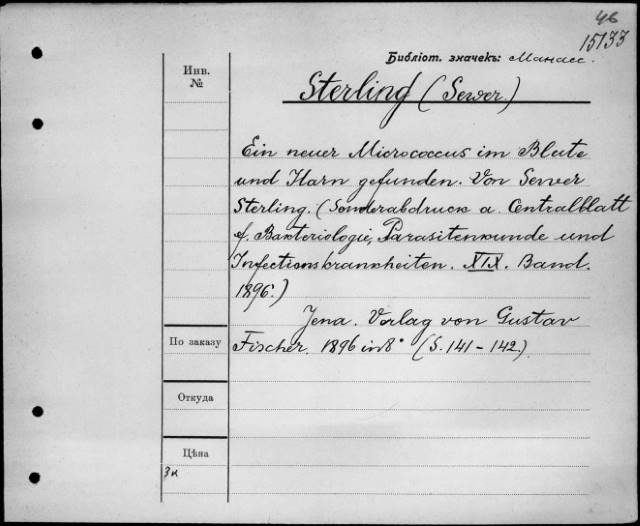 46
15133
Библіот. значекъ: Манасс.
Инв.
№
Sterling (Sewer.)
Ein neuer Micrococcus im Blute
und Harn gefunden. Von Sewer
Sterling. (Sonderabdruck a. Centralblatt
f. Bakteriologie, Parasitenkunde und
Infectionskrankheiten. XIX. Band.
1896.)
Jena. Verlag von Gustav
По заказу
Fischer. 1896 in 8° (S. 141-142.)
Откуда
Цѣна
3к